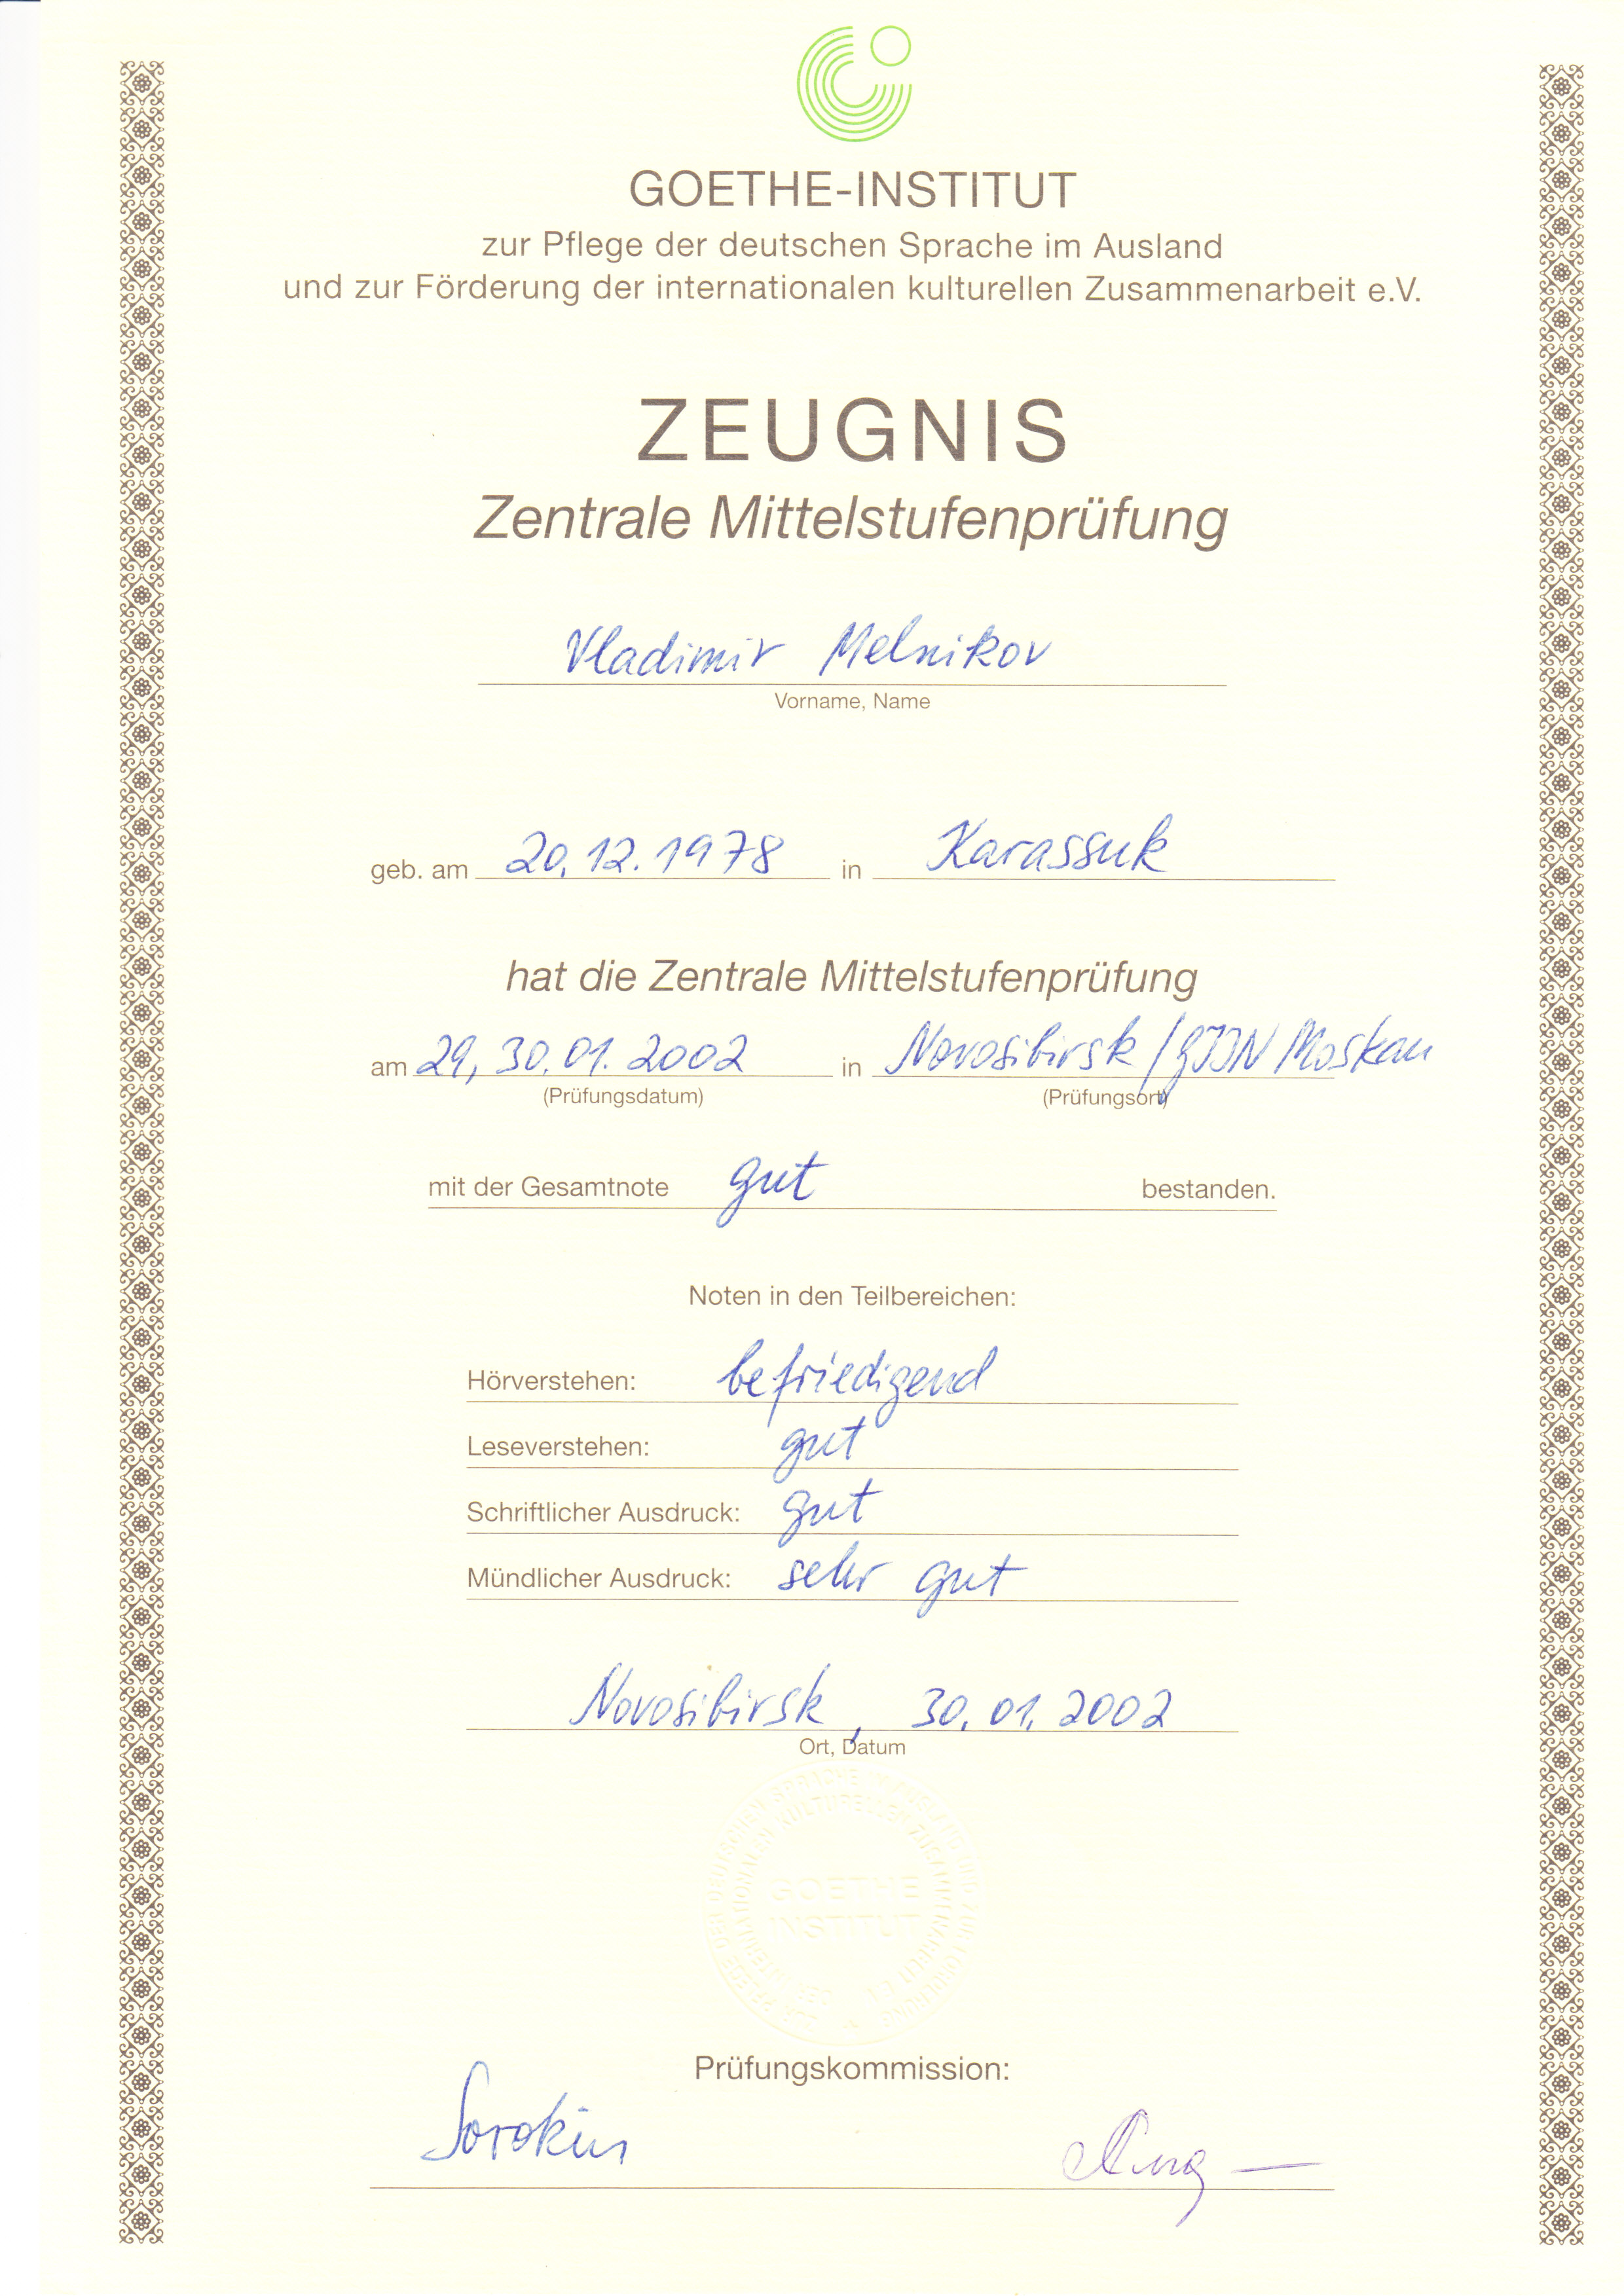 GOETHE-INSTITUT
zur Pflege der deutschen Sprache im Ausland
und zur Förderung der internationalen kulturellen Zusammenarbeit e.V.
ZEUGNIS
Zentrale Mittelstufenprüfung
Vladimir Melnikov
Vorname, Name
geb. am 20.12.1978 in Karassuk
hat die Zentrale Mittelstufenprüfung
am 29, 30.01.2002 in Novosibirsk / GIIN Moskau
(Prüfungsdatum) (Prüfungsort)
mit der Gesamtnote gut bestanden.
Noten in den Teilbereichen:
Hörverstehen: befriedigend
Leseverstehen: gut
Schriftlicher Ausdruck: gut
Mündlicher Ausdruck: sehr gut
Novosibirsk, 30.01.2002
Ort, Datum
GOETHE
INSTITUT
Prüfungskommission:
Sorokin